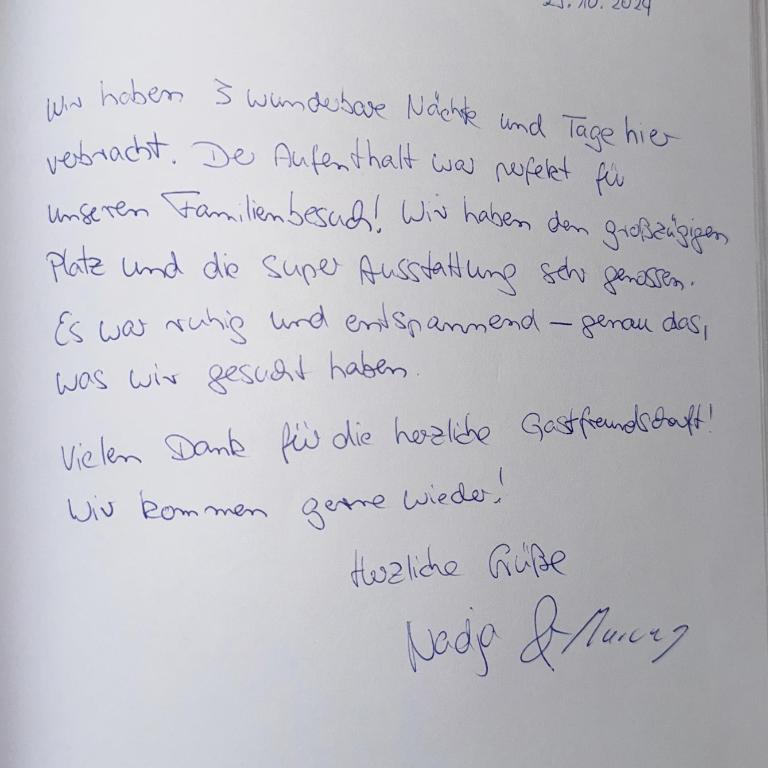 23.10.2024
Wir haben 3 wunderbare Nächte und Tage hier
verbracht. Der Aufenthalt war perfekt für
unseren Familienbesuch! Wir haben den großzügigen
Platz und die super Ausstattung sehr genossen.
Es war ruhig und entspannend – genau das,
was wir gesucht haben.
Vielen Dank für die herzliche Gastfreundschaft!
Wir kommen gerne wieder!
Herzliche Grüße
Nadja & Marcus